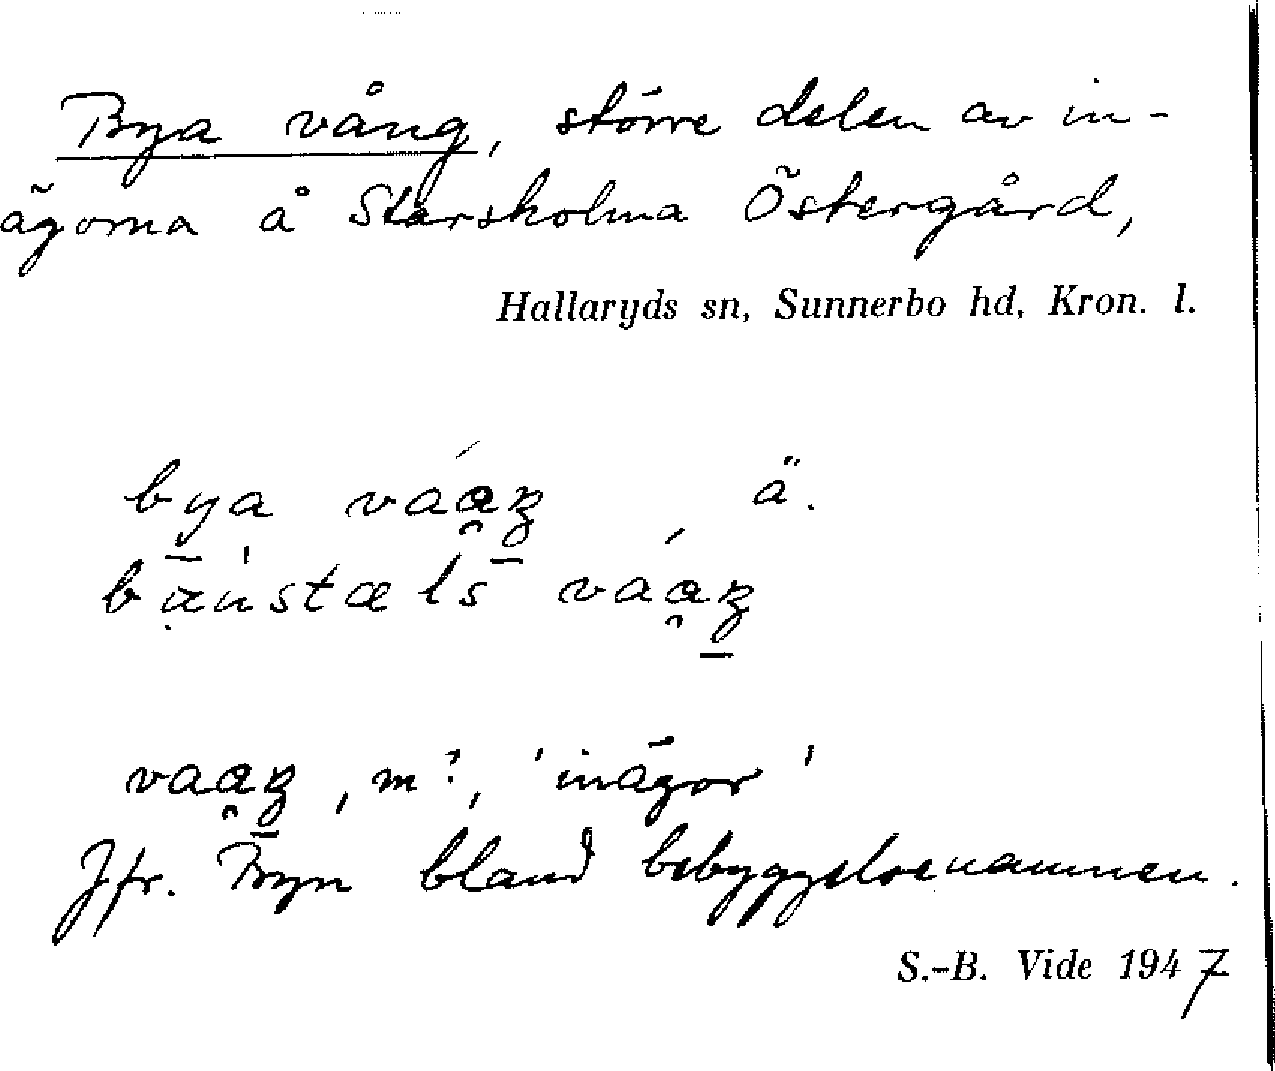 Bya vång, större delen av in-
ägorna å Starsholma Östergård,
Hallaryds sn, Sunnerbo hd, Kron. l.
bya ä.
, m?, 'inägor'
Jfr. Byn bland bebyggelsenamnen.
S.-B. Vide 1947